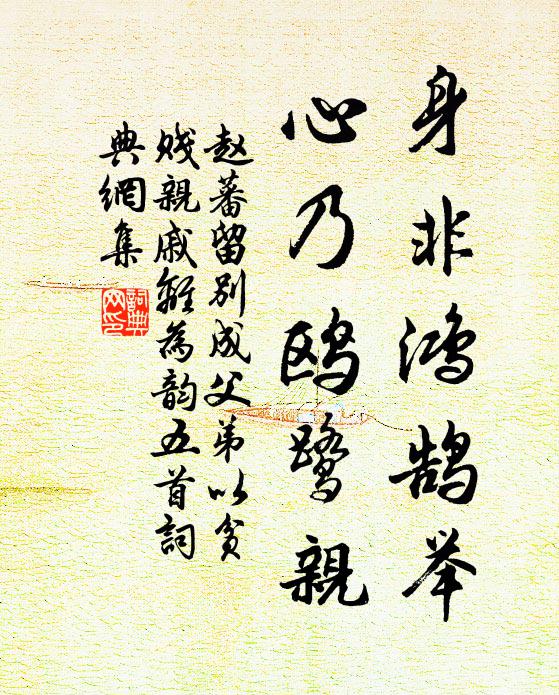 身非鸿鹄举
心乃鸥鹭亲
赵蕃留别成父弟以贫
贱親戚離為韵五首词
典網集
詞典
网印